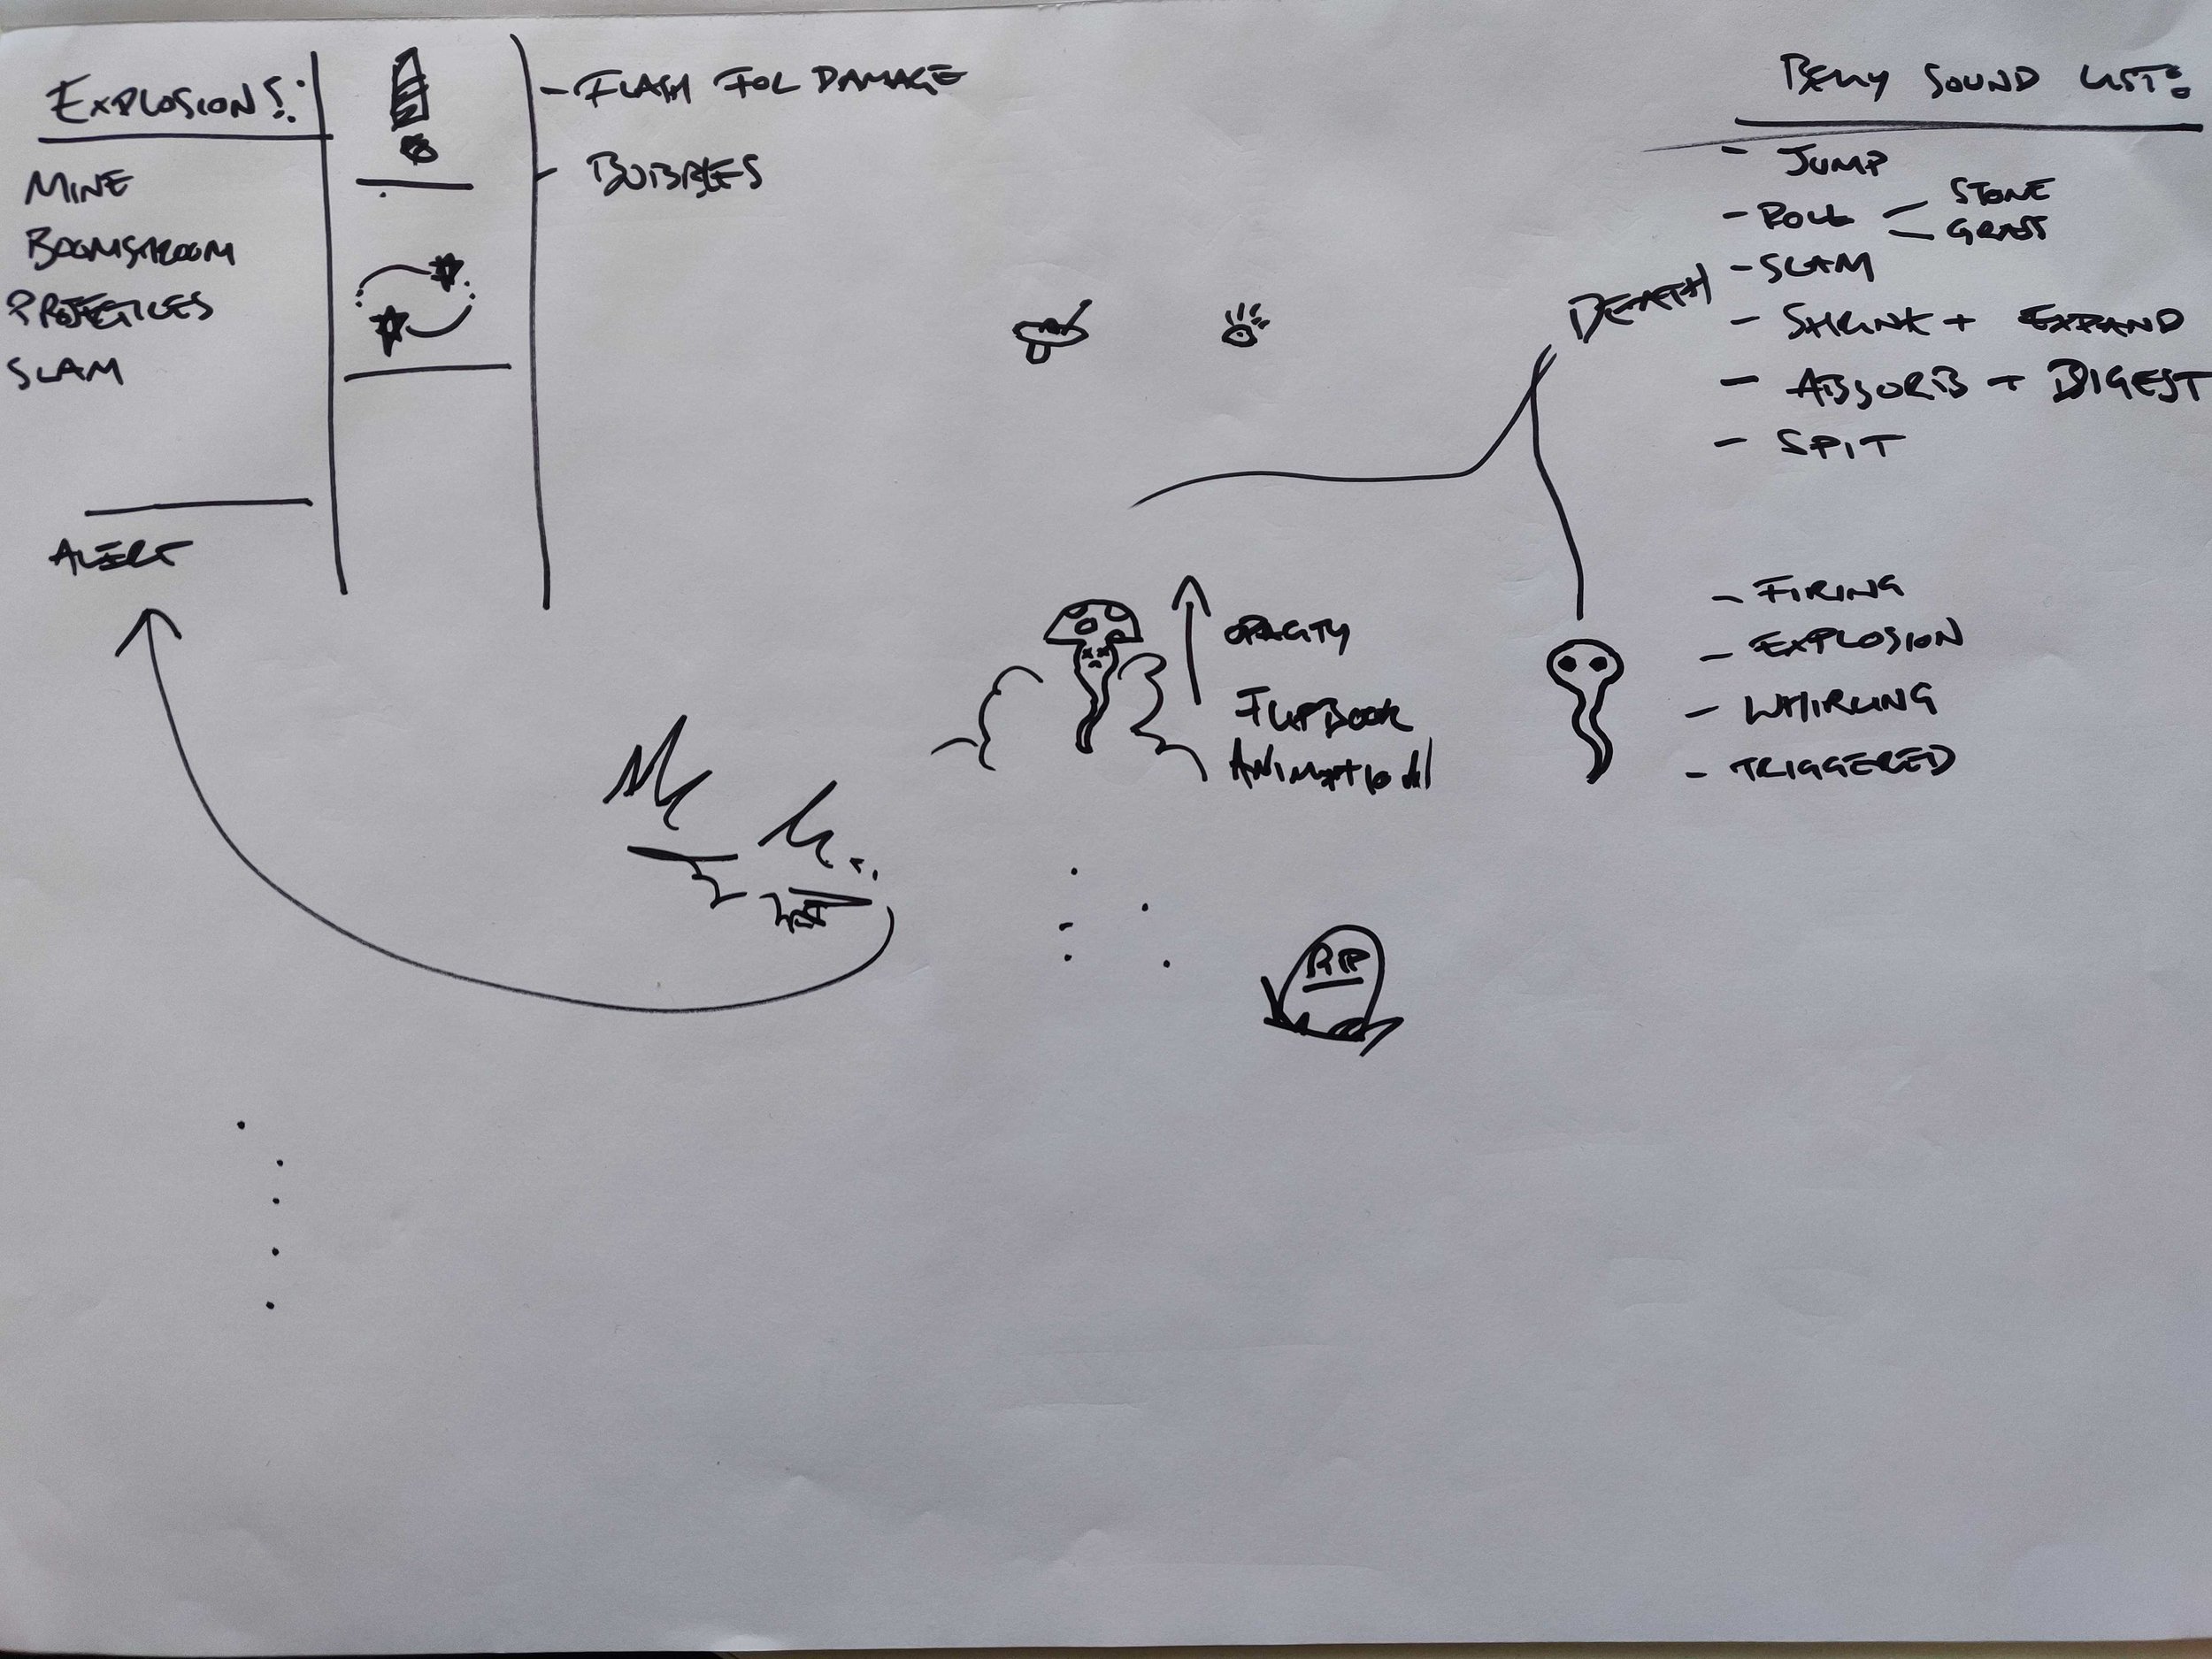 EXPLOSIONS:
MINE
BOOMSHROOM
PROJECTILES
SLAM
ALERT
- FLASH FOR DAMAGE
- BUBBLES
DEATH
OPACITY
FLIPBOOK
ANIMATION
RIP
BELLY SOUND LIST:
- JUMP
- ROLL < STONE
GRASS
- SLAM
- SHRINK + EXPAND
- ABSORB + DIGEST
- SPIT
- FIRING
- EXPLOSION
- WHIRLING
- TRIGGERED